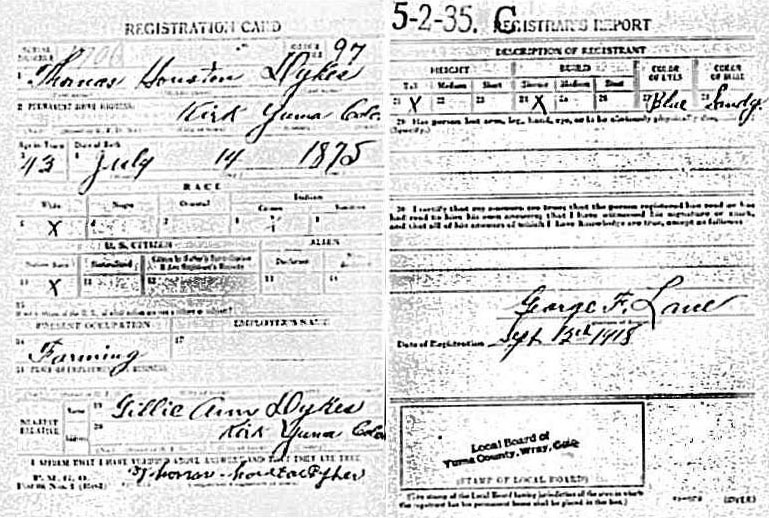 REGISTRATION CARD
SERIAL NUMBER
ORDER NUMBER 97
1 Thomas Houston Dykes
2 PERMANENT HOME ADDRESS
Kirk Yuma Colo.
Age in Years Date of Birth
43 July 14 1875
RACE
White Negro Oriental Indian
Citizen
X
U. S. CITIZEN ALIEN
Native Born Naturalized Declarant
10 X 11 12 13
PRESENT OCCUPATION EMPLOYER'S NAME
16 Farming 17
NEAREST RELATIVE Name 19 Gillie Ann Dykes
Address 20 Kirk Yuma Colo
I AFFIRM THAT I HAVE VERIFIED ABOVE ANSWERS AND THAT THEY ARE TRUE
P. M. G. O.
Form No. 1 (Red)
5-2-35. C
REGISTRAR'S REPORT
DESCRIPTION OF REGISTRANT
HEIGHT BUILD COLOR OF EYES COLOR OF HAIR
Tall Medium Short Slender Medium Stout
21 X 22 23 24 X 25 26 27 Blue 28 Sandy
29 Has person lost arm, leg, hand, eye, or is he obviously physically
(Specify.)
30 I certify that my answers are true; that the person registered has read or has
had read to him his own answers; that I have witnessed his signature or mark,
and that all of his answers of which I have knowledge are true, except as follows:
George F. Lane
Date of Registration Sept 12th 1918
Local Board of
Yuma County, Wray, Colo.
(STAMP OF LOCAL BOARD)
(The stamp of the Local Board having jurisdiction of the area in which
the registrant has his permanent home shall be placed in this box.)
(OVER)